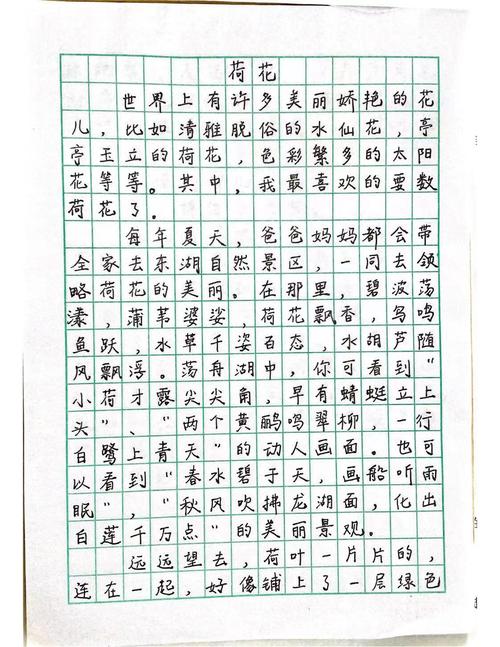 荷花
世界上有许多美丽娇艳的花
儿，比如清雅脱俗的水仙花，亭
亭玉立的荷花，色彩繁多的太阳
花等等。其中，我最喜欢的要数
荷花了。
每年夏天，爸爸妈妈都会带
全家去东湖自然景区，一同去领
略荷花的美丽。在那里，碧波荡
漾，蒲苇婆娑，荷花飘香，鸟鸣
鱼跃，水草千姿百态，水葫芦随
风飘浮。荡舟湖中，你可看到“
小荷才露尖尖角，早有蜻蜓立上
头”、“两个黄鹂鸣翠柳，一行
白鹭上青天”的动人画面。也可
以看到“春水碧于天，画船听雨
眠”，“秋风吹拂龙湖面，化出
白莲千万点”的美丽景观。
远远望去，荷叶一片片的，
连在一起，好像铺上了一层绿色